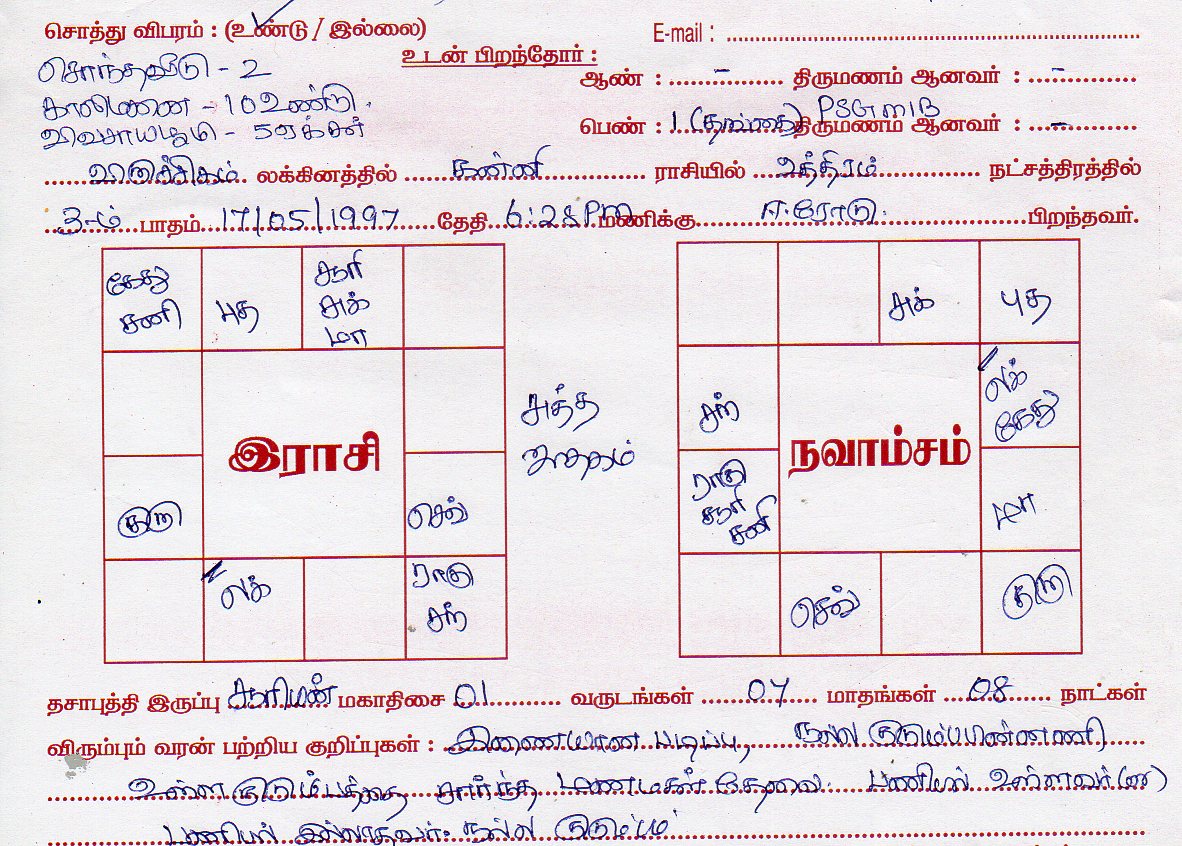 சொத்து விபரம் : (உண்டு / இல்லை)
E-mail : ........................
உடன் பிறந்தோர் :
சொந்தவீடு - 2
ஆண் : ......-...... திருமணம் ஆனவர் : ..-........
காலிமனை - 10 உண்டு.
விவசாயபூமி - 5 ஏக்கர்
பெண் : 1 (தங்கை) PSG MIB திருமணம் ஆனவர் : ..-........
விருச்சிகம் லக்கினத்தில் கன்னி ராசியில் உத்திரம் நட்சத்திரத்தில்
3-ம் பாதம் 17/05/1997 தேதி 6:28 PM மணிக்கு ஈரோடு பிறந்தவர்.
கேது சனி
புத
சூரி சுக் மா
குரு
இராசி
செவ்
லக்
ராகு சந்
சுத்த
ஜாதகம்
சுக்
புத
சந்
லக் கேது
ராகு சூரி சனி
நவாம்சம்
மா
செவ்
குரு
தசாபுத்தி இருப்பு சூரியன் மகாதிசை 01 வருடங்கள் 07 மாதங்கள் 08 நாட்கள்
விரும்பும் வரன் பற்றிய குறிப்புகள் : இணையான படிப்பு, நல்ல குடும்பபின்னணி
உள்ள குடும்பத்தை சார்ந்த மணமகன் தேவை. பணியில் உள்ளவர்
பணியில் இல்லாதவர். நல்ல குடும்பம்